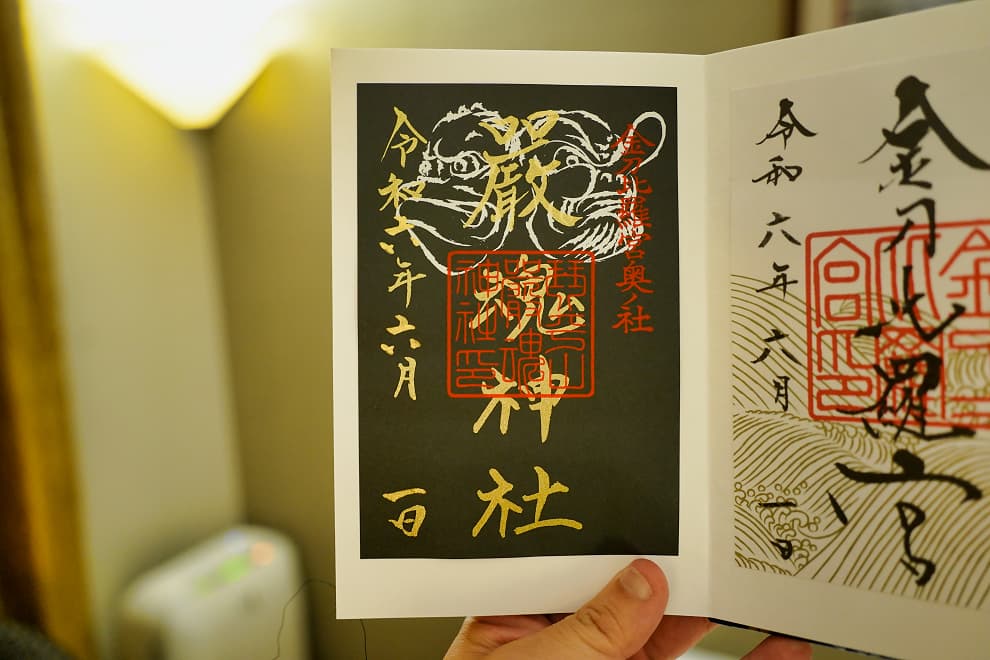 金刀比羅宮
令和六年六月一日
金刀比羅宮奥ノ社
嚴魂神社
嚴魂
神社印
令和六年六月一日